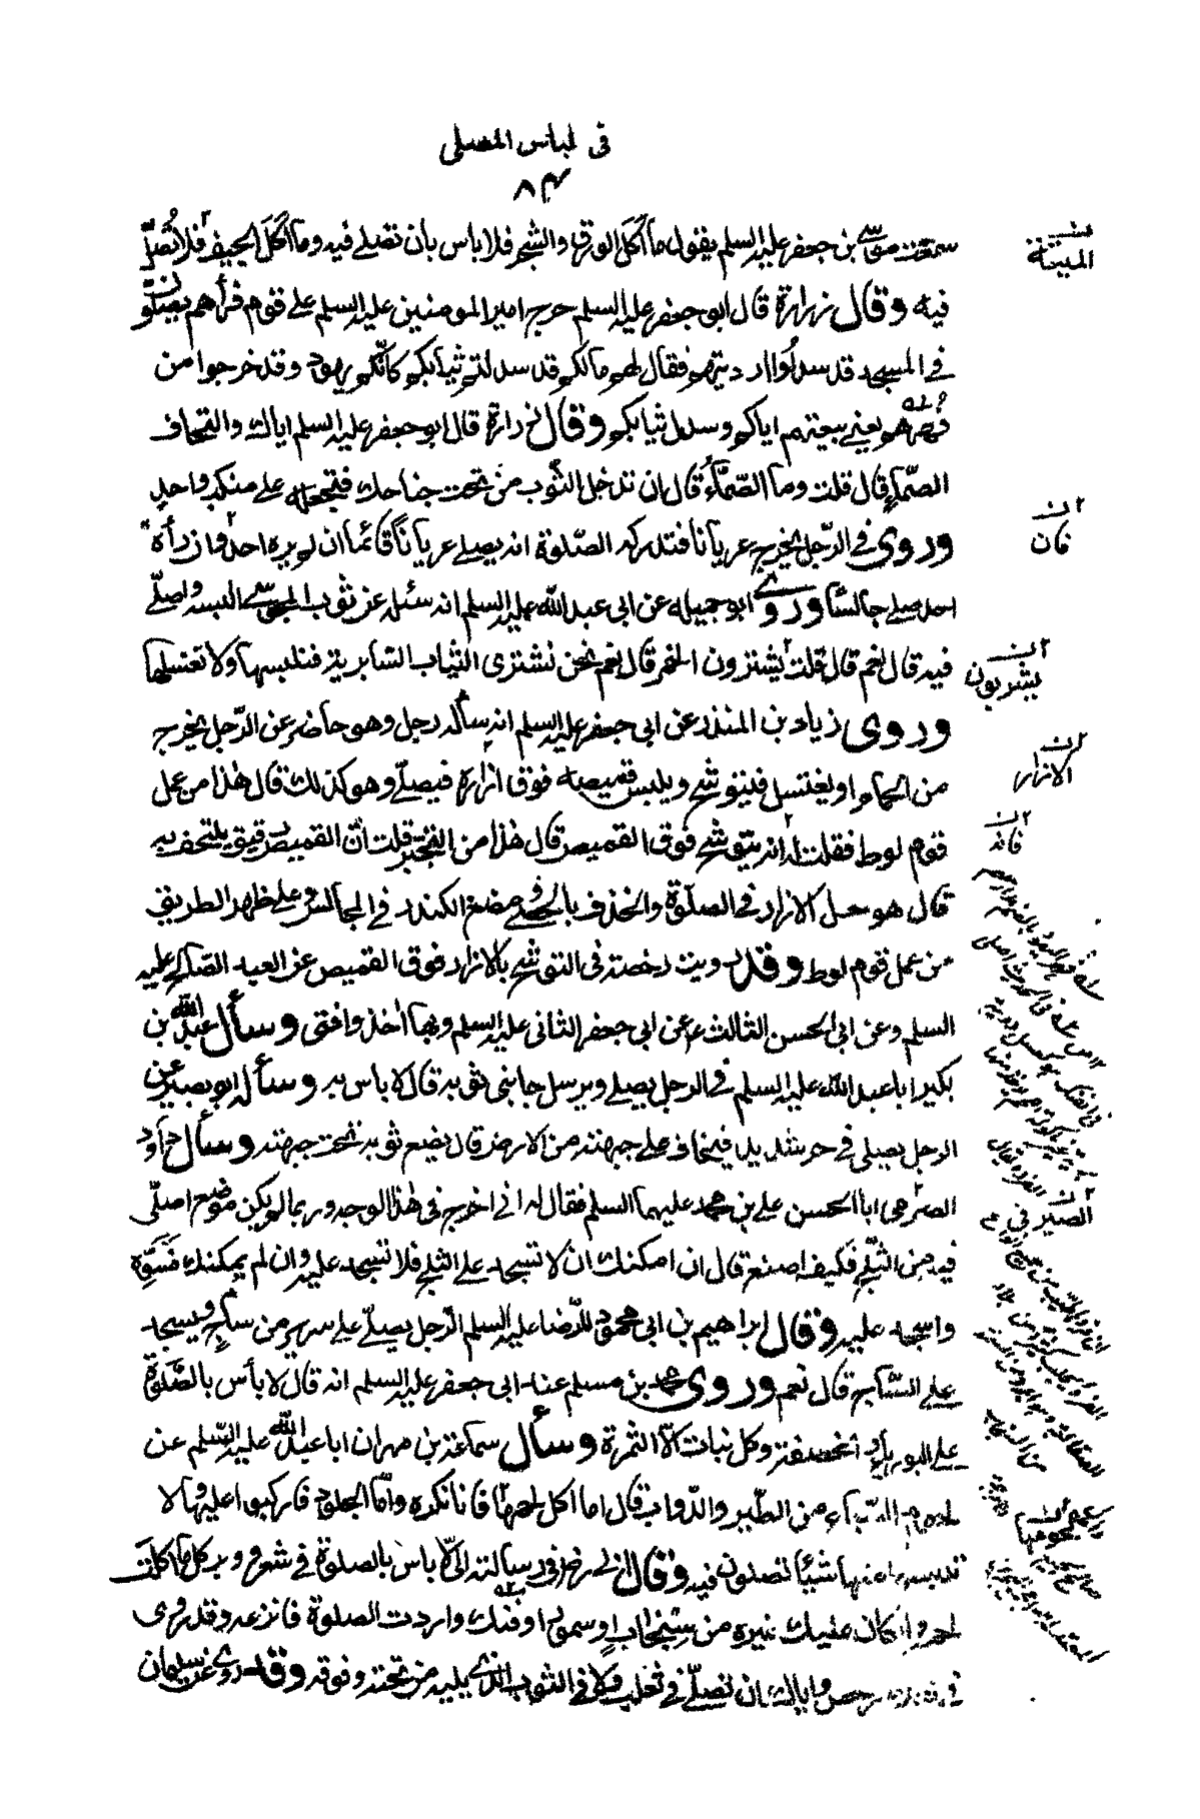 فى لباس المصلى
٨٣
سمعت موسى بن جعفر عليه السلم يقول ما أكل الورق والشجر فلا باس بان تصلے فيه وما أكل الجيف فلا تصلّ
فيه وقال زرارة قال ابو جعفر عليه السلم خرج امير المومنين عليه السلم على قوم فرأهم يصلون
فے المسجد قد سدلوا ارديتهم فقال لهم مالكم قد سدلتم ثيابكم كانّكم يهود وقد خرجوا من
فهرهم يعنے بيعتهم اياكم وسدل ثيابكم وقال زرارة قال ابو جعفر عليه السلم اياك والتحاف
الصّمّاء قال قلت وما الصّمّاء قال ان تدخل الثوب من تحت جناحك فتجعله على منكب واحد
وروى فى الرّجل يخرج عريانا فتدركه الصّلوة انه يصلے عرياناً قائما ان لم يره احد وان رأه
احد صلے جالسًا وروى ابو جميله عن ابى عبد الله عليه السلم انه سئله عن ثوب المجوسے البسه واصلّے
فيه قال نعم قال قلت يشترون الخمر قال نعم نحن نشترى الثياب السابرية فنلبسها ولا نغسلها
وروى زياد بن المنذر عن ابى جعفر عليه السلم انه سأله رجل وهو حاضر عن الرّجل يخرج
من الحمام او يغتسل فيتوشح ويلبس قميصه فوق ازاره فيصلّے وهو كذلك قال هذا من عمل
قوم لوط فقلت له انه يتوشح فوق القميص قال هذا من التجبر قلت انّ القميص رقيق يلتحف به
قال هو حل الازار فى الصلوة والخذف بالحصے ومضغ الكندر فى المجالس وعلى ظهر الطريق
من عمل قوم لوط وقد رويت رخصة فى التوشح بالازار فوق القميص عن العبد الصّالح عليه
السلم وعن ابى الحسن الثالث وعن ابى جعفر الثانى عليه السلم وبها اخذ وافتى وسأل عبد الله بن
بكير ابا عبد الله عليه السلم فى الرجل يصلے ويرسل جانبى ثوبه قال لا باس به وسأله ابو بصير عن
الرجل يصلى فى حر شديد فيخاف على جبهته من الارض قال يضع ثوبه تحت جبهته وسأل داود
الصرمى ابا الحسن على بن محمد عليهما السلم فقال له انى اخرج فى هذا الوجه وربما لم يكن موضع اصلّى
فيه من الثلج فكيف اصنع قال ان امكنك ان لا تسجد على الثلج فلا تسجد عليه وان لم يمكنك فسوّه
واسجد عليه وقال ابراهيم بن ابى محمود للرّضا عليه السلم الرّجل يصلّے على سرير من ساج ويسجد
على السّاج قال نعم وروى محمد بن مسلم عن ابى جعفر عليه السلم انه قال لا بأس بالصّلوة
على البوريا والخصفة وكل نبات الّا الثمرة وسأل سماعة بن مهران ابا عبد الله عليه السّلم عن
لحوم السّباع من الطّير والدّواب قال اما اكل لحومها فانا نكرهه وامّا الجلود فاركبوا عليها ولا
تلبسوا منها شيئاً تصلون فيه وقال ابى رض فى رسالته الىّ لا باس بالصلوة فى شعر ووبر كل ما اكلت
لحمه وان كان عليك غيره من سنجاب او سمور او فنك واردت الصلوة فانزعه وقد روى
فى ذلك رخص واياك ان تصلّے فى ثعلب ولا فى الثوب الذى يليه من تحته وفوقه وقد روى عن سليمان
الميتة
فان
يشربون
الازار
فانه
الصير فى
لحومها